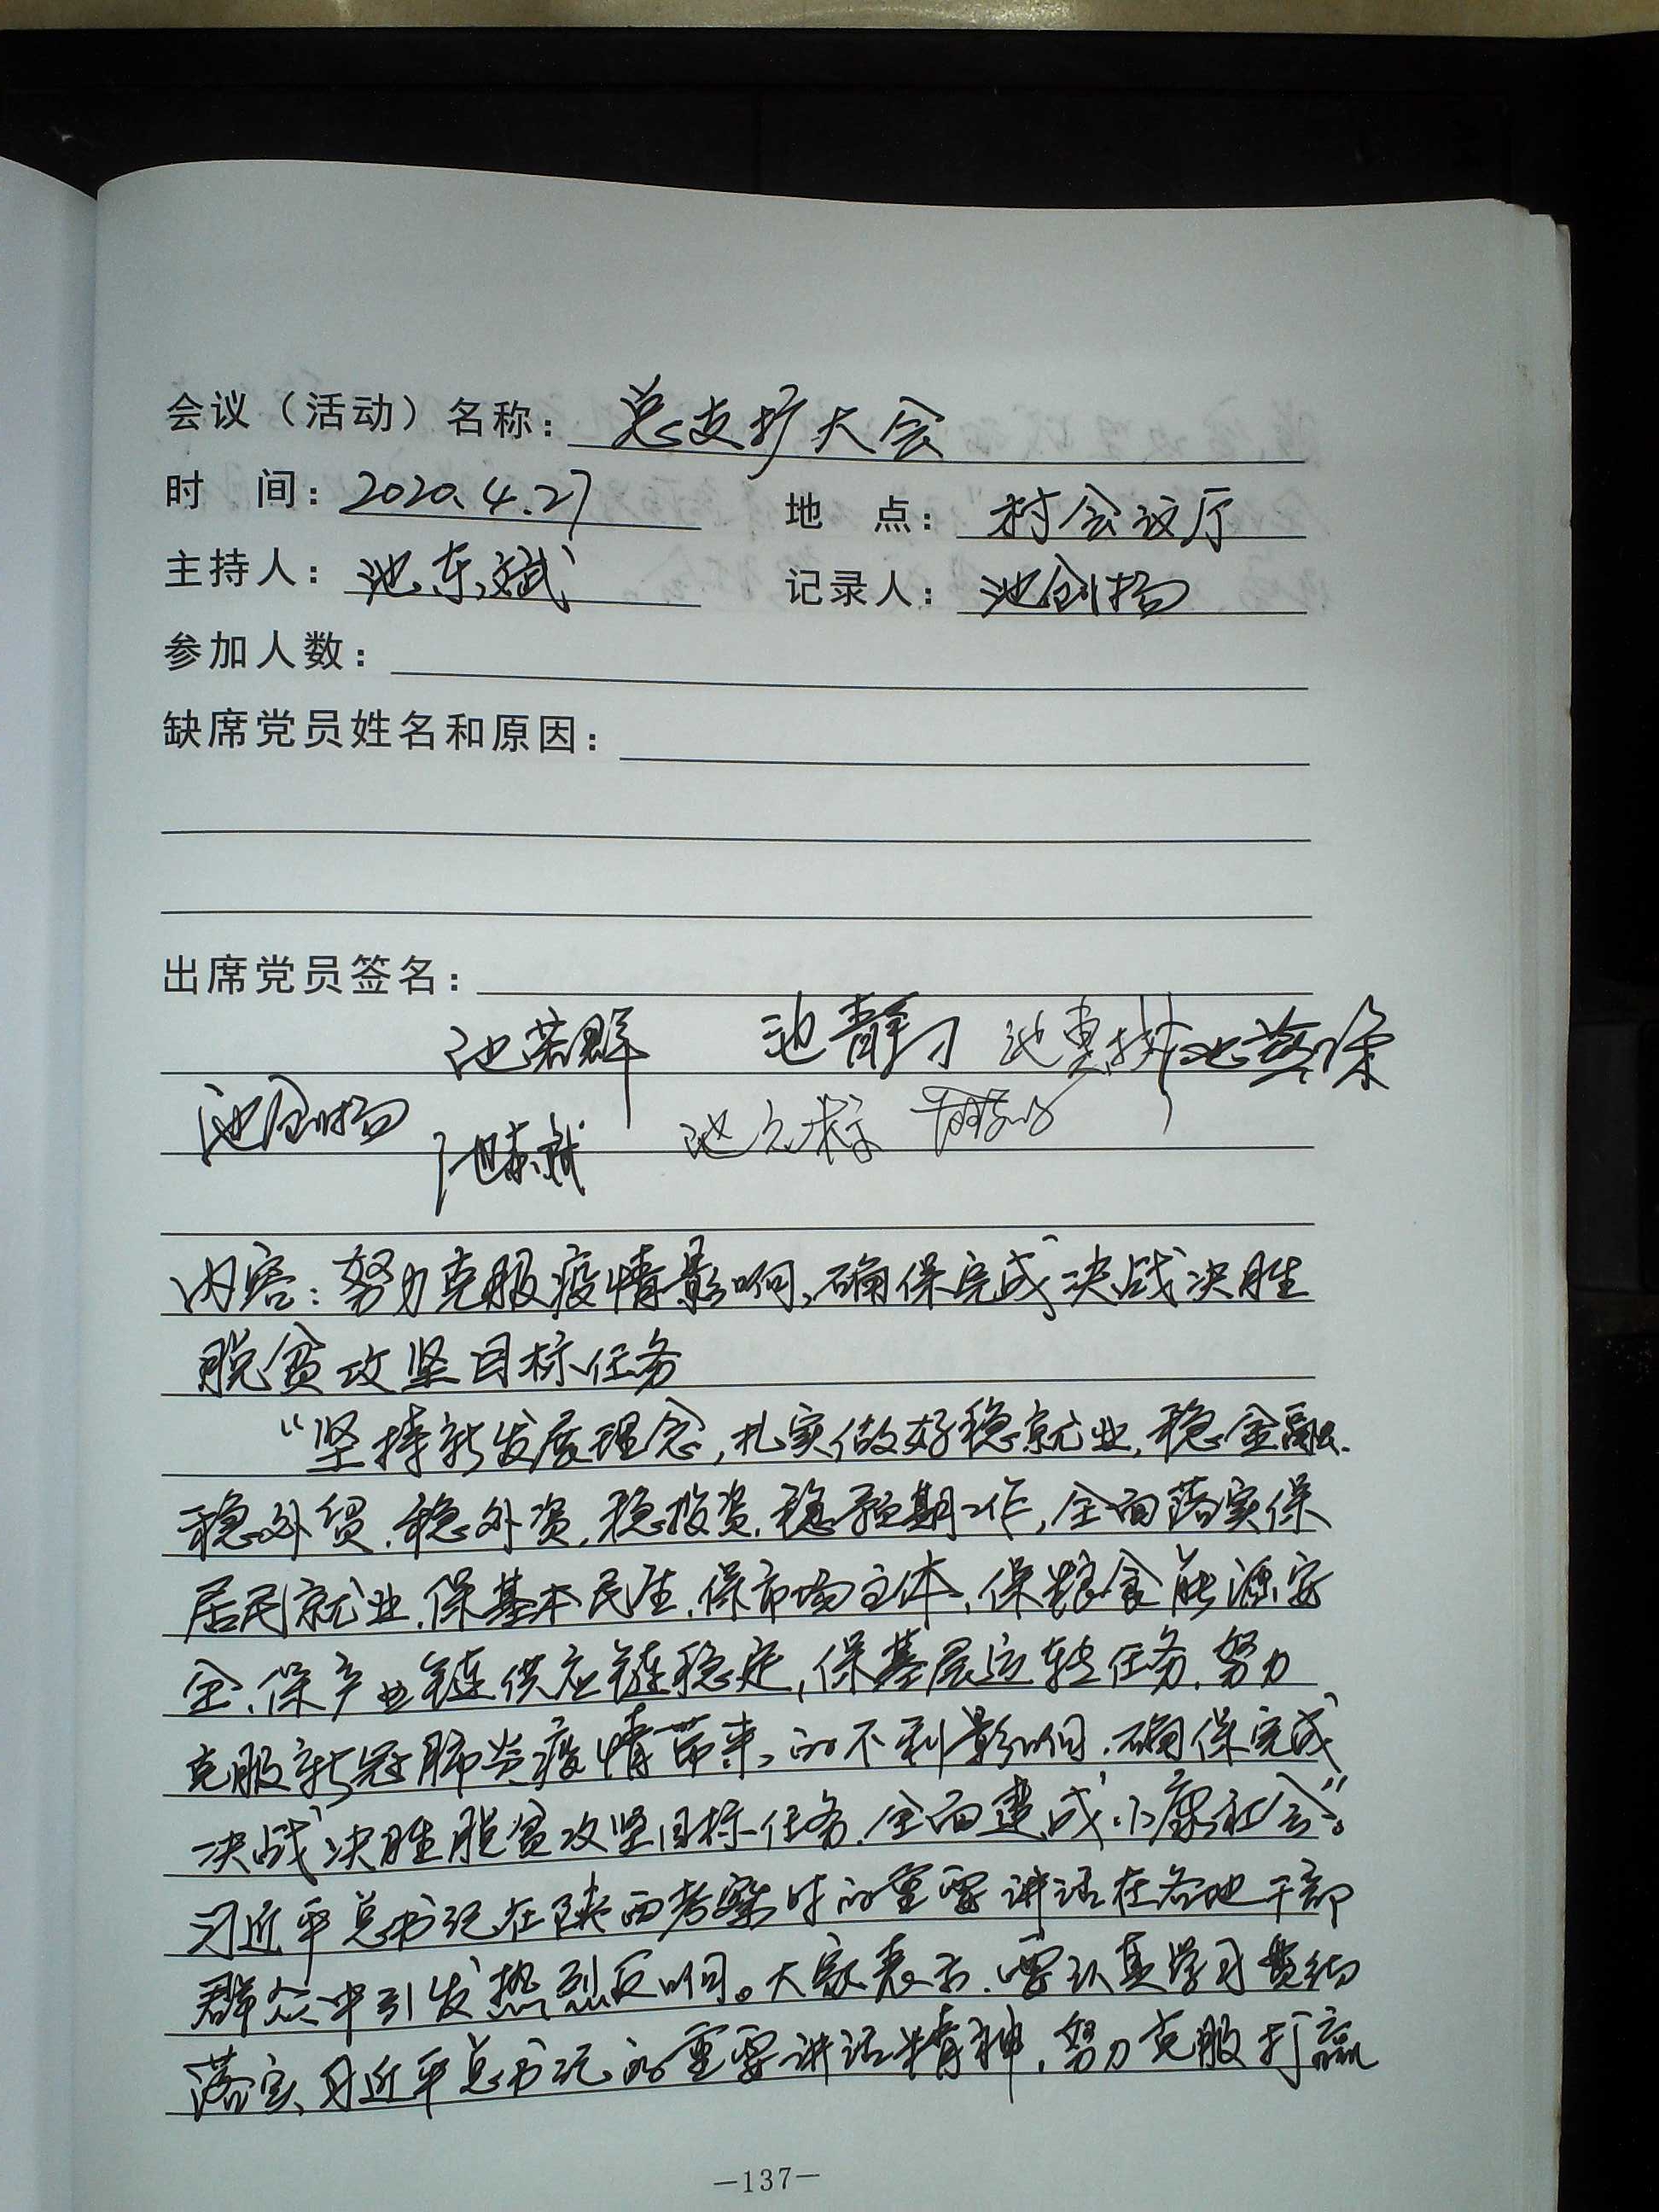 会议（活动）名称：总支扩大会
时 间：2020.4.27 地 点：村会议厅
主持人：池东斌 记录人：池创扬
参加人数：
缺席党员姓名和原因：
出席党员签名：
池若群 池静 池惠
池创扬 池东斌 池
内容：努力克服疫情影响,确保完成决战决胜
脱贫攻坚目标任务
“坚持新发展理念,扎实做好稳就业,稳金融、
稳外贸、稳外资,稳投资、稳预期工作,全面落实保
居民就业、保基本民生、保市场主体、保粮食能源安
全、保产业链供应链稳定,保基层运转任务,努力
克服新冠肺炎疫情带来的不利影响,确保完成
决战决胜脱贫攻坚目标任务,全面建成小康社会”。
习近平总书记在陕西考察时的重要讲话在各地干部
群众中引发热烈反响。大家表示,要认真学习贯彻
落实习近平总书记的重要讲话精神,努力克服打赢
—137—